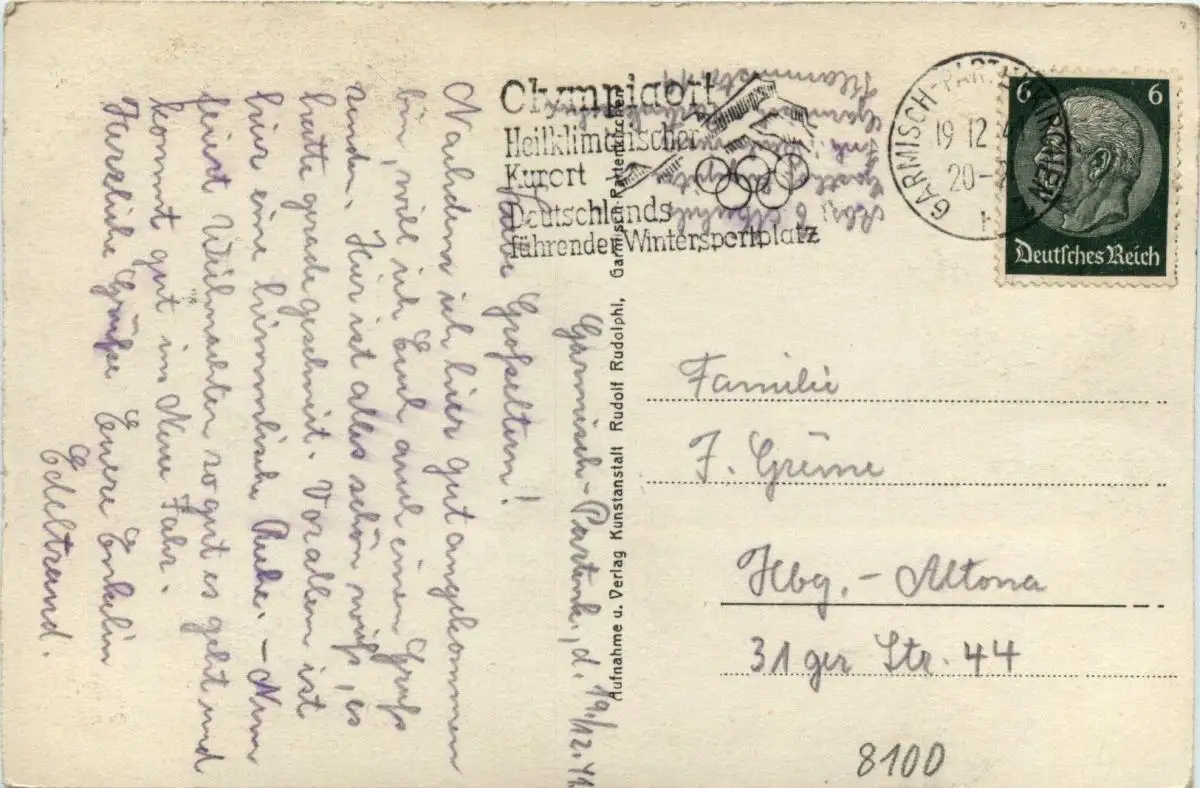 Garmisch-Partenk., d. 19./12. 41
Liebe Großeltern!
Nachdem ich hier gut angekommen
bin, will ich Euch auch einen Gruß
senden. Hier ist alles schön weiß, es
hatte grade geschneit. Vorallem ist
hier eine himmlische Ruhe. – Nun
feiert Weihnachten so gut es geht und
kommt gut ins Neue Jahr.
Herzliche Grüße Euere Enkelin
Edeltraud.
Olympiaort
Heilklimatischer
Kurort
Deutschlands
führender Wintersportplatz
GARMISCH-PARTENKIRCHEN
19 12 41
20-
6 6
Deutsches Reich
Aufnahme u. Verlag Kunstanstalt Rudolf Rudolphi, Garmisch-Partenkirchen
Familie
F. Grüne
Hbg. - Altona
31ger Str. 44
8100